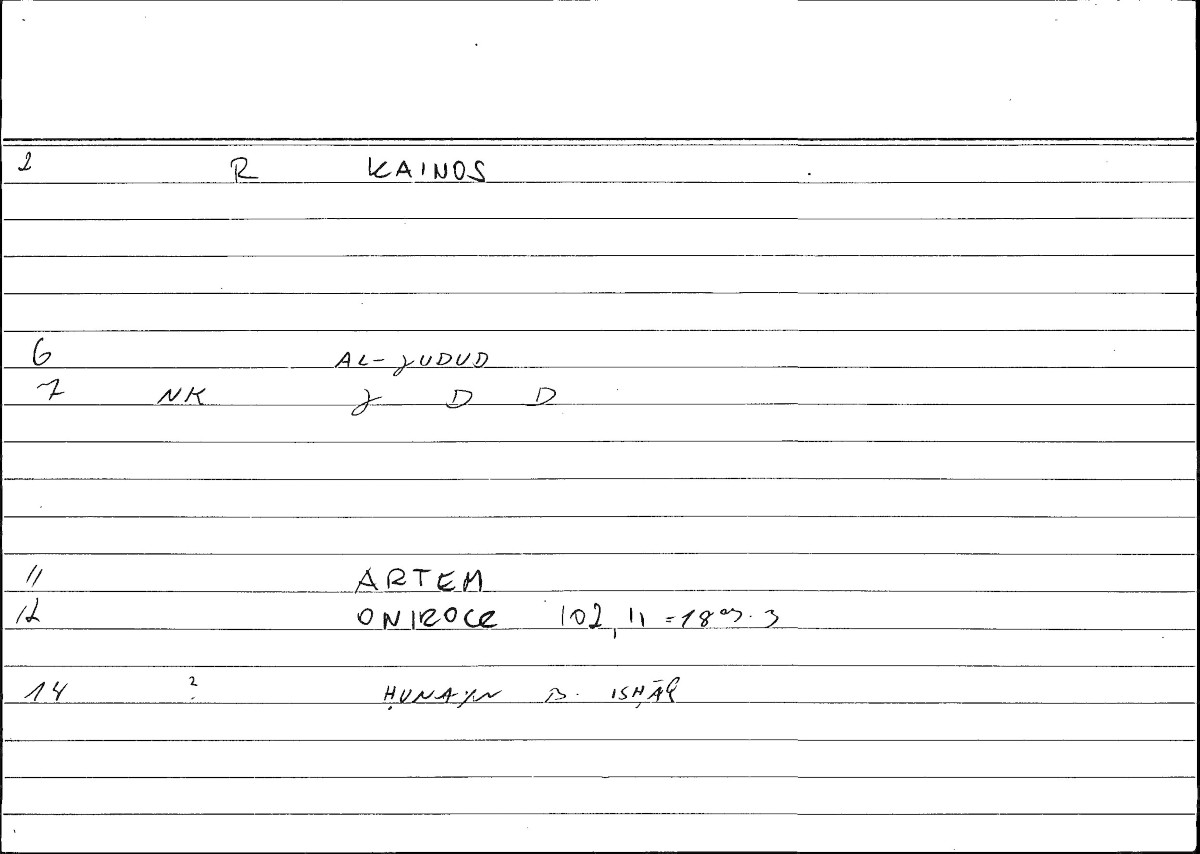 2 R KAINOS
6 AL-JUDUD
7 NK J D D
11 ARTEM
12 ONIROCR 102, 11 =18
14 ? ḤUNAYN B. ISḤĀQ